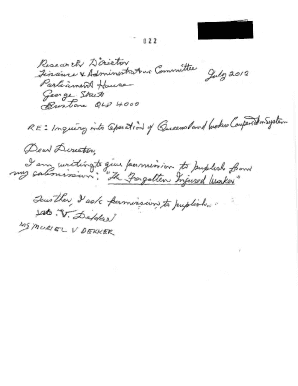 022
Research Director
Finance & Administration Committee
July 2012
Parliament House
George Street
Brisbane QLD 4000
RE: Inquiry into Operation of Queensland Workers Compensation System
Dear Director,
I am writing to give permission to publish from
my submission: "The Forgotten Injured Worker"
Further, I ask permission to publish.
V. Dekker
MS MURIEL V DEKKER